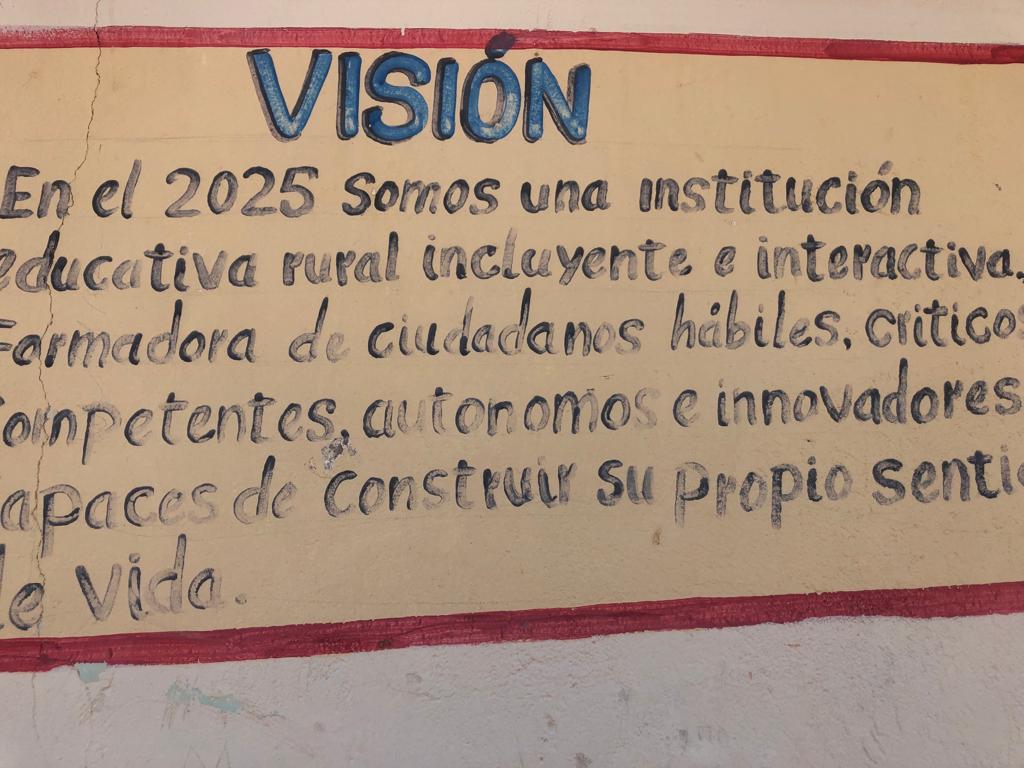 VISIÓN
En el 2025 somos una institución
educativa rural incluyente e interactiva.
Formadora de ciudadanos hábiles, criticos
competentes, autonomos e innovadores
capaces de construir su propio senti
de vida.